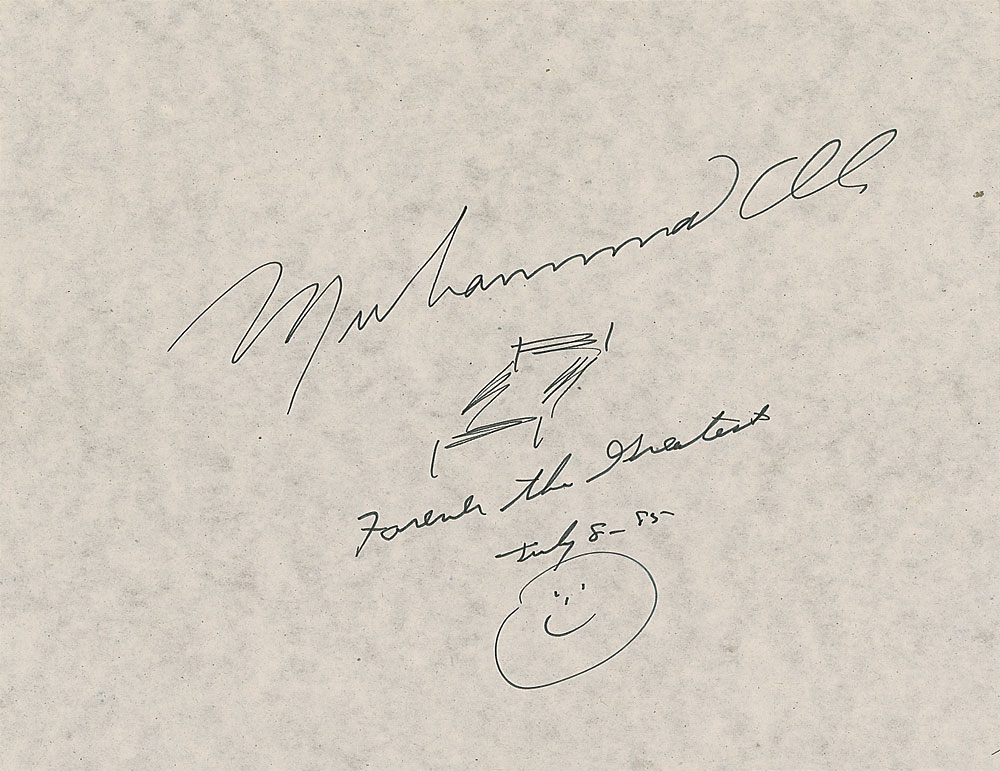 Muhammad Ali
Forever the Greatest
July 8-85-